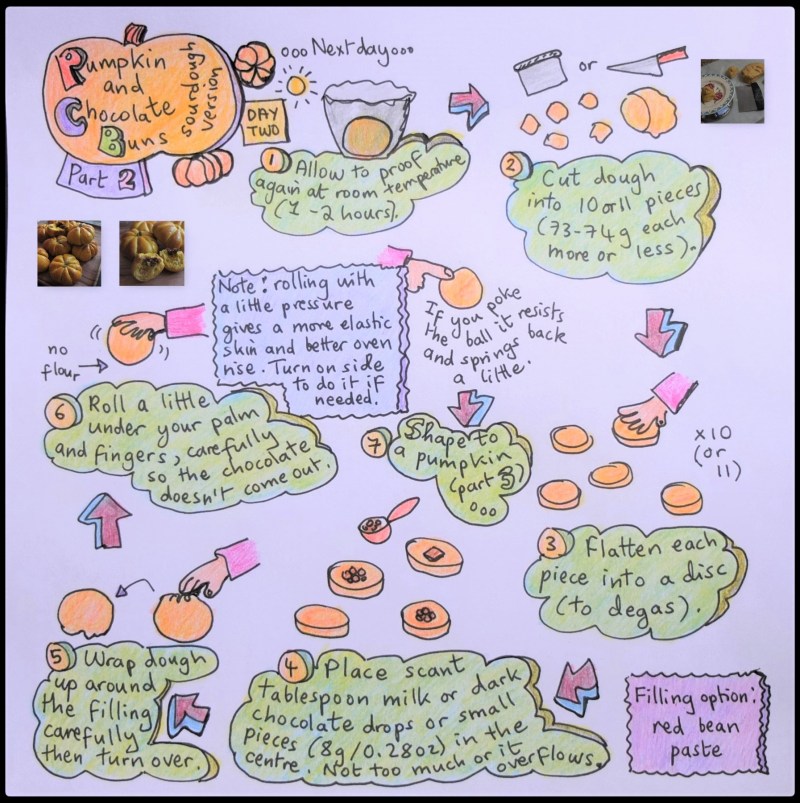 Pumpkin
and
Chocolate
Buns
sourdough
version
Part 2
ooo Next day ooo
DAY
TWO
1 Allow to proof
again at room temperature
(1-2 hours).
or
2 Cut dough
into 10 or 11 pieces
(73-74g each
more or less).
x10
(or
11)
3 Flatten each
piece into a disc
(to degas).
4 Place scant
tablespoon milk or dark
chocolate drops or small
pieces (8g/0.28oz) in the
centre. Not too much or it overflows.
Filling option:
red bean
paste
5 Wrap dough
up around
the filling
carefully
then turn over.
no
flour
6 Roll a little
under your palm
and fingers, carefully
so the chocolate
doesn't come out.
Note: rolling with
a little pressure
gives a more elastic
skin and better oven
rise. Turn on side
to do it if
needed.
If you poke
the ball it resists
and springs back
a little.
7 Shape to
a pumpkin
(part 3)
ooo